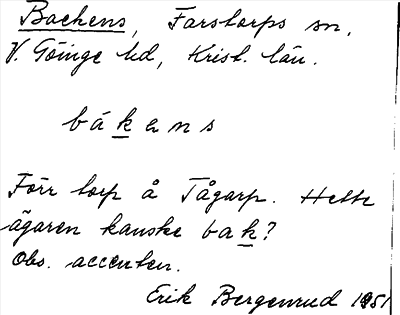 Backens, Farstorps sn,
V. Göinge hd, Krist. län.
bákens
Förr torp å Tågarp. Hette
ägaren kanske bak?
Obs. accenten.
Erik Bergenrud 1951